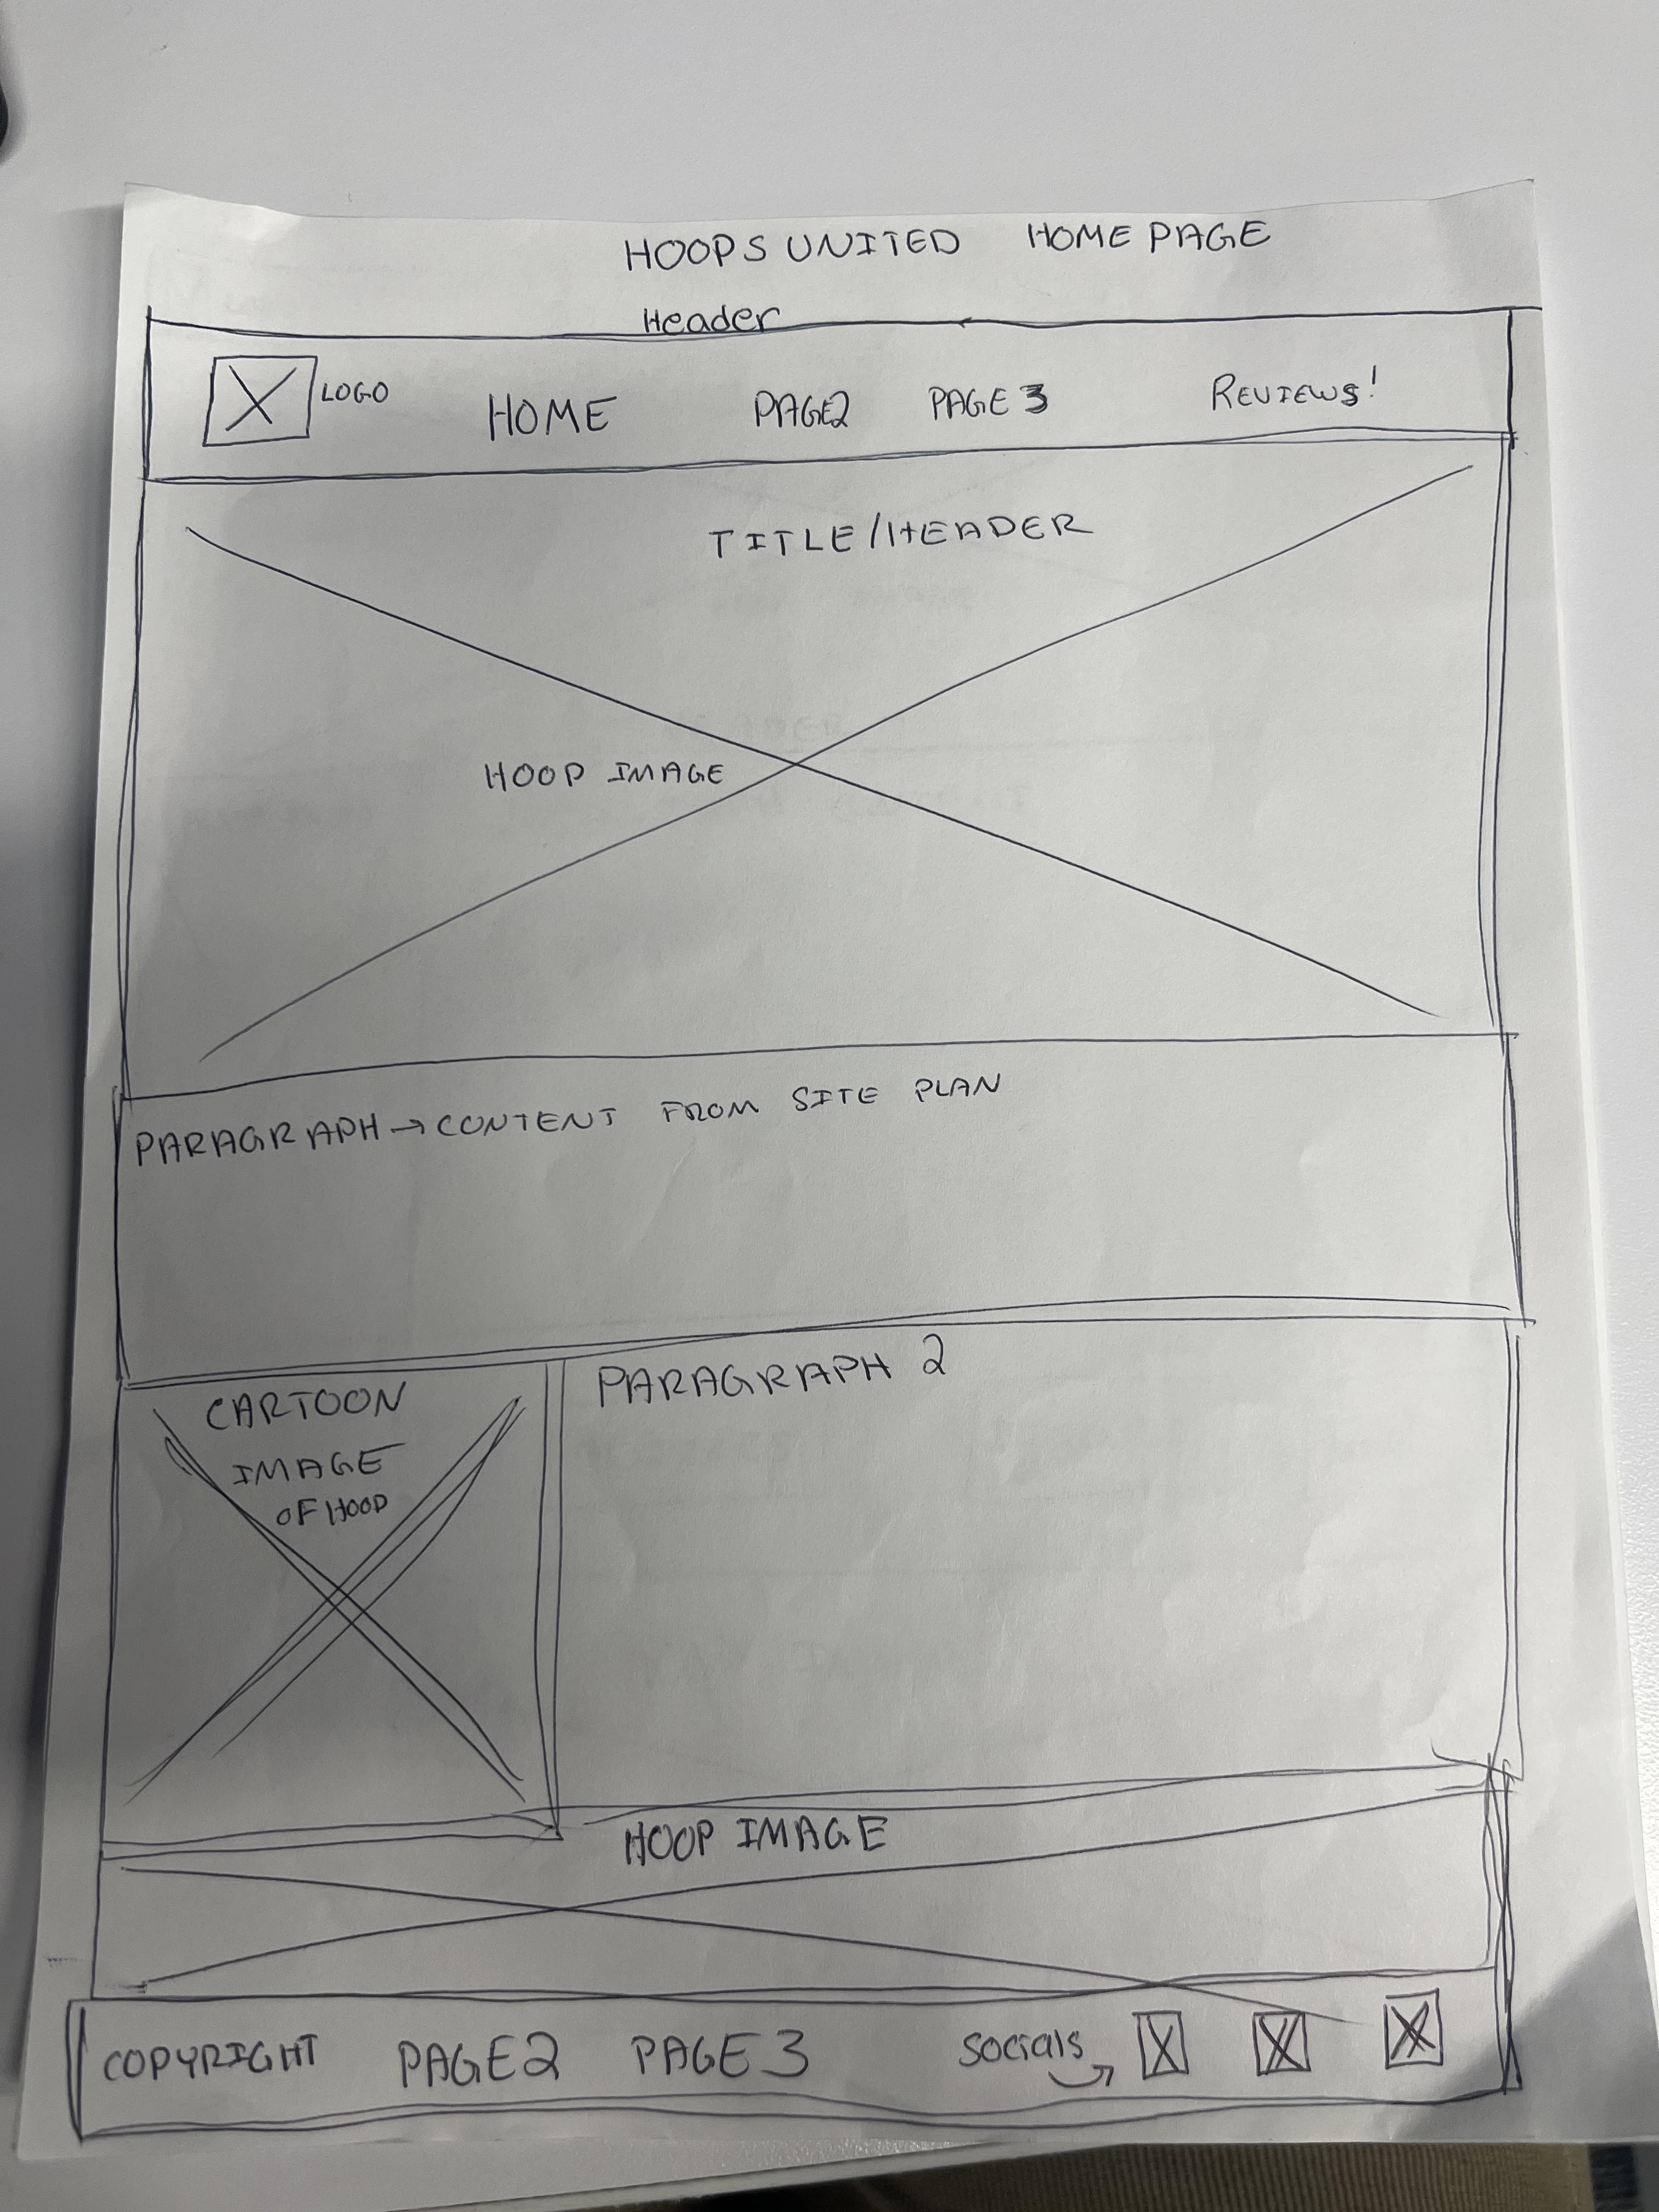 HOOPS UNITED HOME PAGE
Header
LOGO HOME PAGE2 PAGE 3 REVIEWS!
TITLE/HEADER
HOOP IMAGE
PARAGRAPH → CONTENT FROM SITE PLAN
CARTOON
IMAGE
OF HOOP
PARAGRAPH 2
HOOP IMAGE
COPYRIGHT PAGE2 PAGE 3 Socials